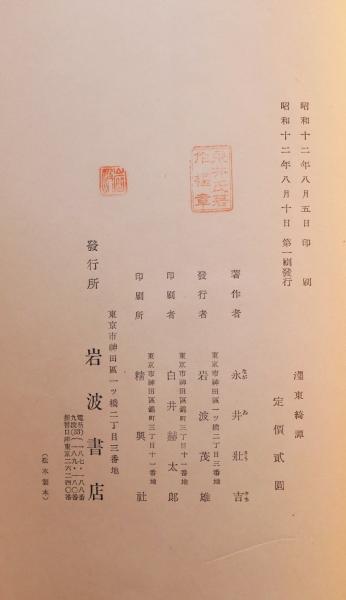 昭和十二年八月五日印刷
昭和十二年八月十日第一刷發行
濹東綺譚
定價貳圓
著作者 永井壯吉
なが ゐ さう きち
東京市神田區一ツ橋二丁目三番地
發行者 岩波茂雄
東京市神田區錦町三丁目十一番地
印刷者 白井赫太郎
東京市神田區錦町三丁目十一番地
印刷所 精興社
永井氏著作權章
東京市神田區一ツ橋二丁目三番地
發行所 岩波書店
(松本製本)